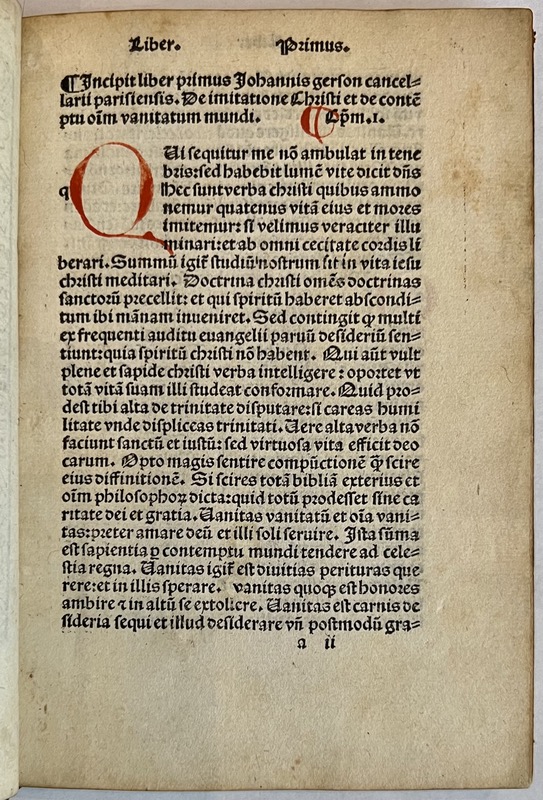 Liber. Primus.
¶Incipit liber primus Johannis gerson cancel⸗
larii parisiensis. De imitatione Christi et de contē
ptu oīm vanitatum mundi. ¶Cpm̄.1.
QUi sequitur me nō ambulat in tene
bris: sed habebit lumē vite dicit dn̄s
q Hec sunt verba christi quibus ammo
nemur quatenus vitā eius et mores
imitemur: si velimus veraciter illu
minari: et ab omni cecitate cordis li
berari. Summū igit̄ studiū nostrum sit in vita iesu
christi meditari. Doctrina christi omēs doctrinas
sanctorū precellit: et qui spiritū haberet abscondi⸗
tum ibi mānam inveniret. Sed contingit ꝙ multi
ex frequenti auditu euangelii paruū desideriū sen⸗
tiunt: quia spiritū christi nō habent. Qui aūt vult
plene et sapide christi verba intelligere: oportet vt
totā vitā suam illi studeat conformare. Quid pro⸗
dest tibi alta de trinitate disputare: si careas humi
litate vnde displiceas trinitati. Uere alta verba nō
faciunt sanctū et iustū: sed virtuosa vita efficit deo
carum. Opto magis sentire compūctionē ꝙ̄ scire
eius diffinitionē. Si scires totā bibliā exterius et
oīm philosophoꝝ dicta: quid totū prodesset sine ca
ritate dei et gratia. Uanitas vanitatū et oīa vani⸗
tas: preter amare deū et illi soli seruire. Ista sūma
est sapientia ꝑ contemptu mundi tendere ad cele⸗
stia regna. Uanitas igit̄ est diuitias perituras que
rere: et in illis sperare. vanitas quoqꝫ est honores
ambire ⁊ in altū se extollere. Uanitas est carnis de
sideria sequi et illud desiderare vn̄ postmodū gra⸗
a ii